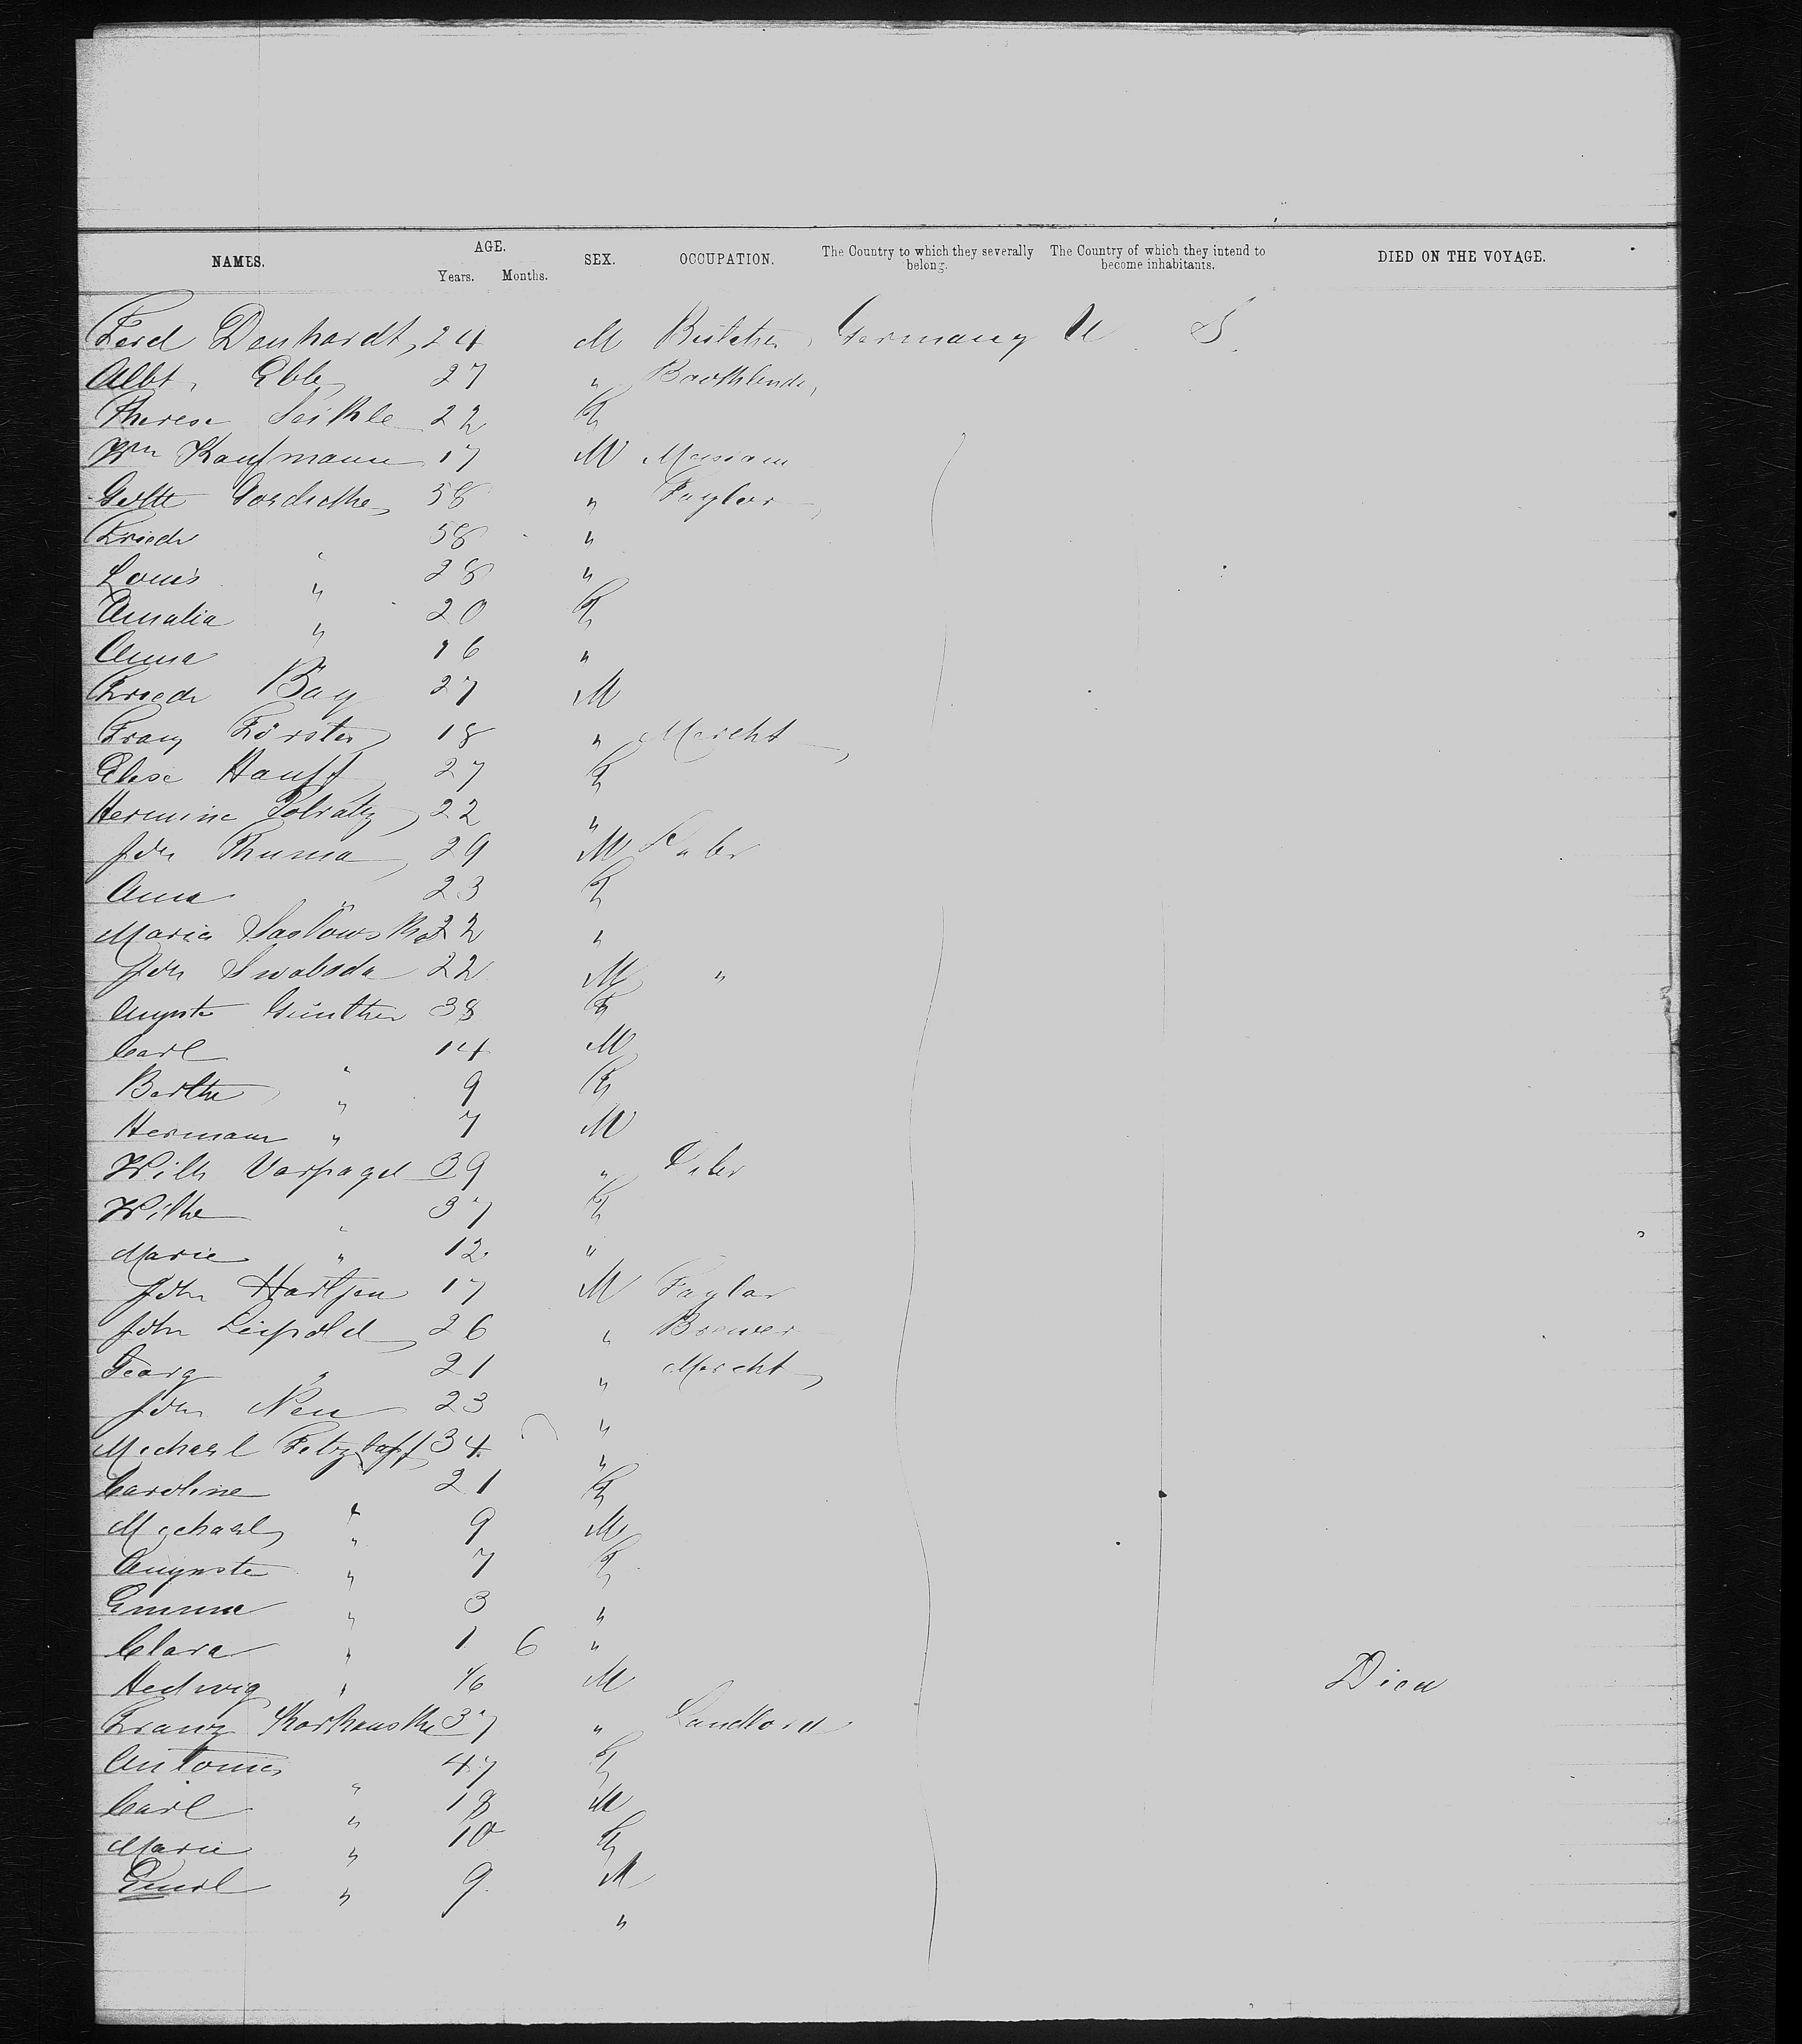 NAMES. AGE. Years. Months. SEX. OCCUPATION. The Country to which they severally belong. The Country of which they intend to become inhabitants. DIED ON THE VOYAGE.
Ferd Denhardt, 24 M Germany U. S.
Albt, Eble 27 "
Therese 22 F
Wm Kaufmann 17 M
58 " Taylor
Friedr " 58 "
Louis " 28 "
Amalia " 20 F
Anna " 16 "
Friedr Bay 27 M
Franz Förster 18 " Mercht
Elise Hauff 27 F
Hermine 22 "
Joh Thuma 29 M
Anna " 23 F
Maria 22 "
Joh Swoboda 22 M "
Auguste Günther 38 F
Carl " 14 M
Berthe " 9 F
Hermann " 7 M
Wilh Varpagel 39 "
Wilhe " 37 F
Marie " 12 "
John Hartjen 17 M Taylor
John Leipold 26 " Brewer
Georg " 21 " Mercht
Joh Neu 23 "
Michael 34 "
Caroline " 21 F
Michael " 9 M
Auguste " 7 F
Emma " 3 "
Clara " 1 6 "
Hedwig " M Died
Franz 37 " Landlord
Antonie " 47 F
Carl " 18 M
Marie " 10 F
Emil " 9 M
"